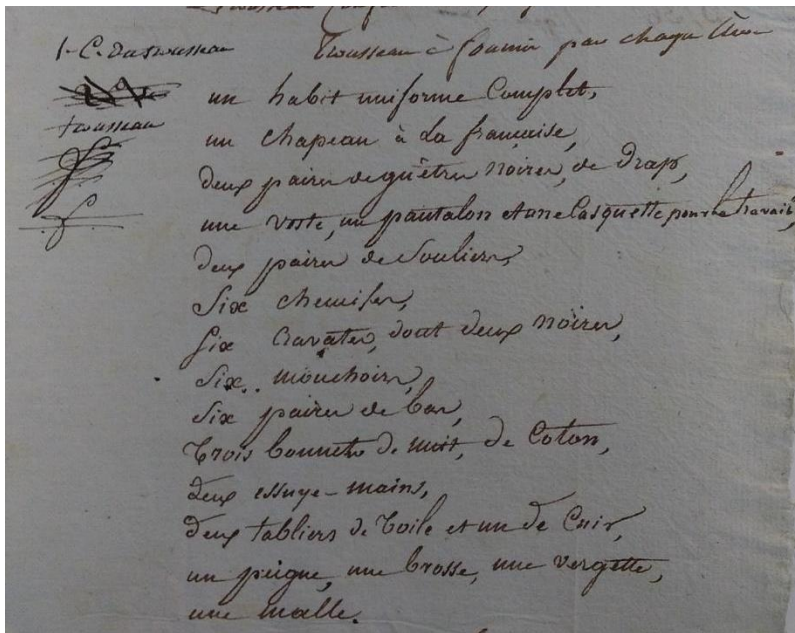 Trousseau à fournir par chaque Élève
un habit uniforme Complet,
trousseau
un chapeau à La françaïse,
deux paires de guêtres noires, de Drap,
une veste, un pantalon et une Casquette pour le travail,
deux paires de Souliers,
Six chemises,
Six Cravates, dont deux noires,
Six mouchoirs,
Six paires de bas,
Trois bonnets de nuit, de Coton,
deux essuye-mains,
deux tabliers de Toile et un de Cuir,
un peigne, une brosse, une vergette,
une malle.